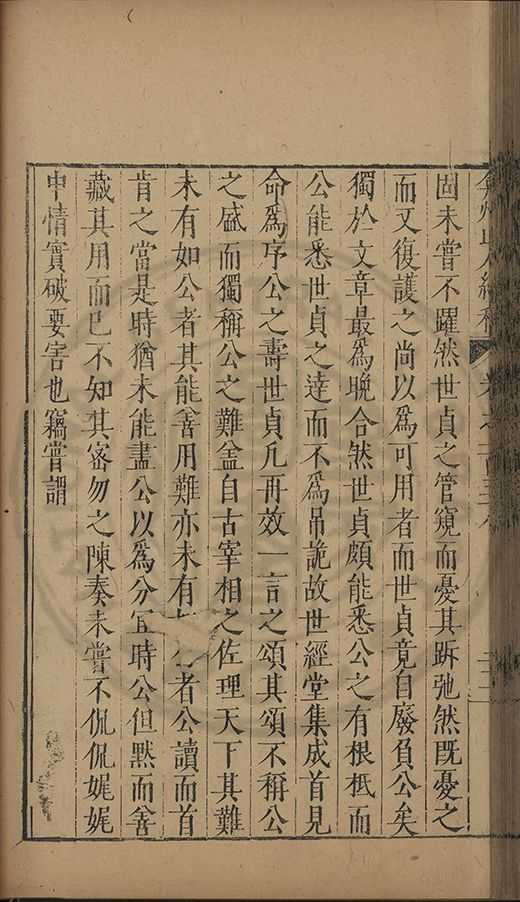 固未嘗不躍然世貞之管窺而憂其跅弛然既憂之
而又復護之尚以為可用者而世貞竟自廢負公矣
獨於文章最為晚合然世貞頗能悉公之有根柢而
公能悉世貞之達而不為吊詭故世經堂集成首見
命爲序公之壽世貞凡再效一言之頌其頌不稱公
之盛而獨稱公之難盖自古宰相之佐理天下其難
未有如公者其能善用難亦未有公者公讀而首
肯之當是時猶未能盡公以為分宜時公但黙而善
藏其用而巳不知其密勿之陳奏未嘗不侃侃娓娓
中情實破要害也竊嘗謂